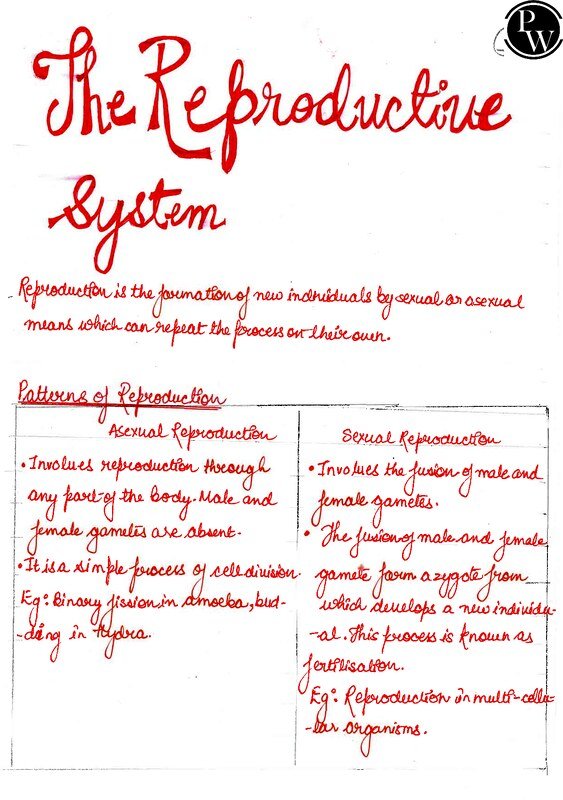 PW
The Reproductive
System
Reproduction is the formation of new individuals by sexual or asexual
means which can repeat the process on their own.
Patterns of Reproduction
Asexual Reproduction
• Involves reproduction through
any part of the body. Male and
female gametes are absent.
• It is a simple process of cell division.
Eg: Binary fission in amoeba, bud-
-ding in Hydra.
Sexual Reproduction
• Involves the fusion of male and
female gametes.
• The fusion of male and female
gamete form a zygote from
which develops a new individu-
-al. This process is known as
fertilisation.
Eg: Reproduction in multi-cellu-
-lar organisms.